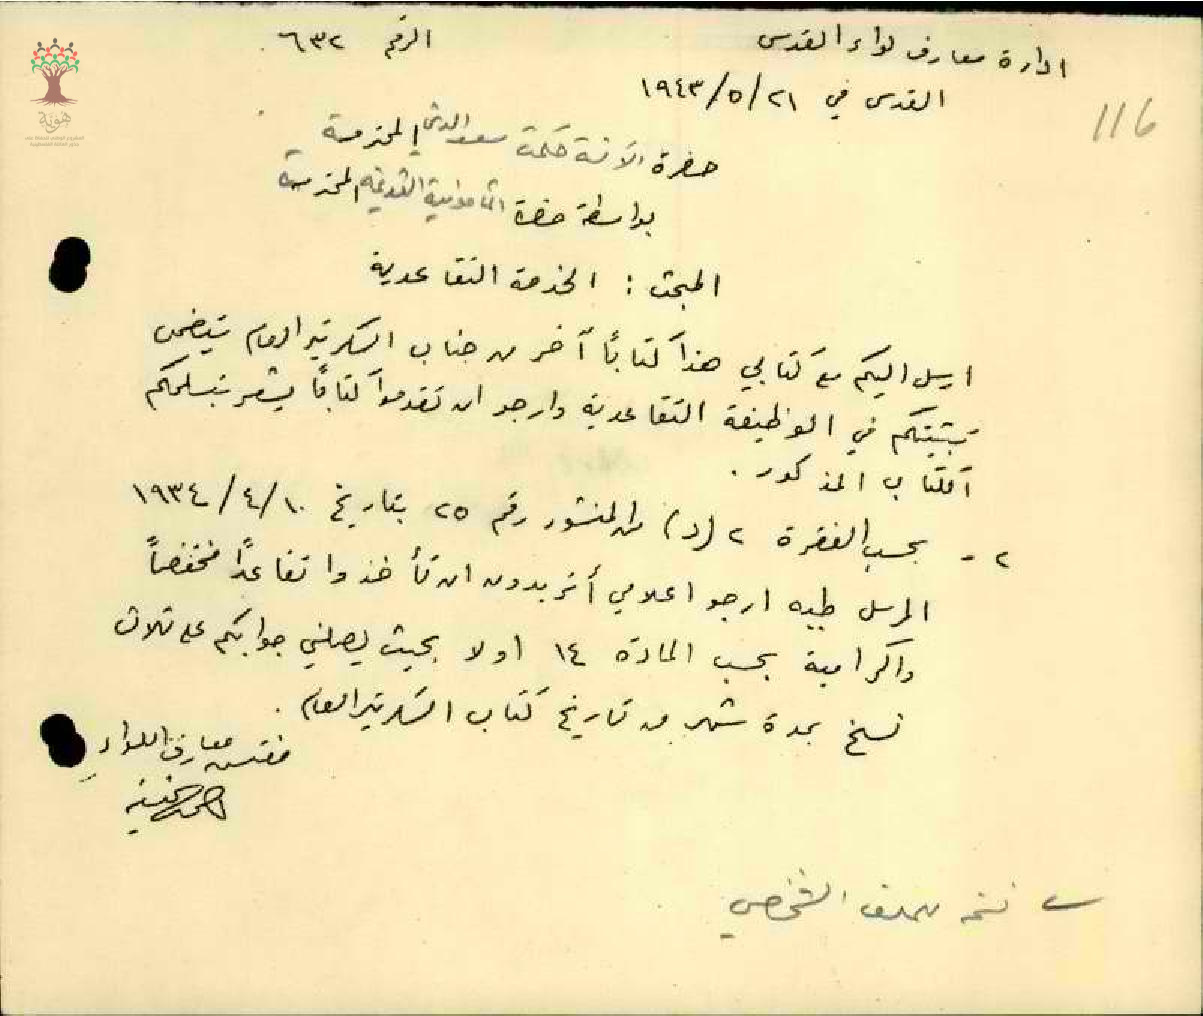 ادارة معارف لواء القدس
الرقم ٦٣٢
القدس في ٢١/٥/١٩٤٣
116
حضرة الآنسة حكمت المحترمة
بواسطة حضرة المحترمة
المبحث : الخدمة التقاعدية
ارسل اليكم مع كتابي هذا كتاباً آخر من جناب السكرتير العام يتضمن
تثبيتكم في الوظيفة التقاعدية وارجو ان تقدموا كتاباً يشعر بتسلمكم
الكتاب المذكور .
٢ - بحسب الفقرة ٢ (د) من المنشور رقم ٢٥ بتاريخ ١٠/٤/١٩٣٤
المرسل طيه ارجو اعلامي أتريدون ان تأخذوا تقاعداً مخفضاً
واكرامية بحسب المادة ١٤ اولا بحيث يصلني جوابكم على ثلاث
نسخ بمدة شهر من تاريخ كتاب السكرتير العام .
مفتش معارف اللواء
نسخة للملف الشخصي
هوية